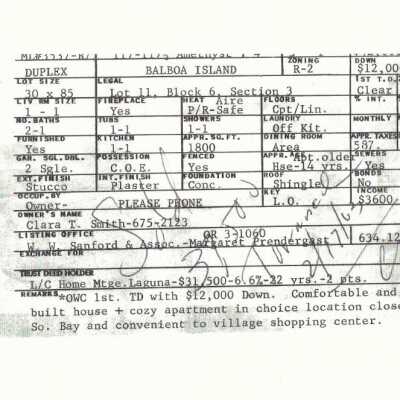 ZONING DOWN
DUPLEX BALBOA ISLAND R-2 $12,00
LOT SIZE LEGAL 1st T.D.
30 x 85 Lot 11, Block 6, Section 3 Clear
LIV RM SIZE FIREPLACE HEAT Aire FLOORS % INT.
1 - 1 Yes P/R-Safe Cpt/Lin.
NO. BATHS TUBS SHOWERS LAUNDRY MONTHLY
2-1 1-1 1-1 Off Kit.
FURNISHED KITCHEN APPR. SQ. FT. DINING ROOM APPR. TAXES
Yes 1-1 1800 Area 587.
GAR. SGL. DBL. POSSESSION FENCED APPR. AGE Apt. older SEWERS
2 Sgle. C.O.E. Yes Hse-14 yrs. Yes
EXT. FINISH INT. FINISH FOUNDATION ROOF BONDS
Stucco Plaster Conc. Shingle No
OCCUP. BY KEY INCOME
Owner- PLEASE PHONE L.O. $3600
OWNER'S NAME
Clara T. Smith-675-2123
LISTING OFFICE OR 3-1060
W. W. Sanford & Assoc.-Margaret Prendergast 634.12
EXCHANGE FOR
Sold
TRUST DEED HOLDER
L/C Home Mtge.Laguna-$31,500-6.6%-22 yrs.-2 pts.
REMARKS *OWC 1st. TD with $12,000 Down. Comfortable and
built house + cozy apartment in choice location close
So. Bay and convenient to village shopping center.